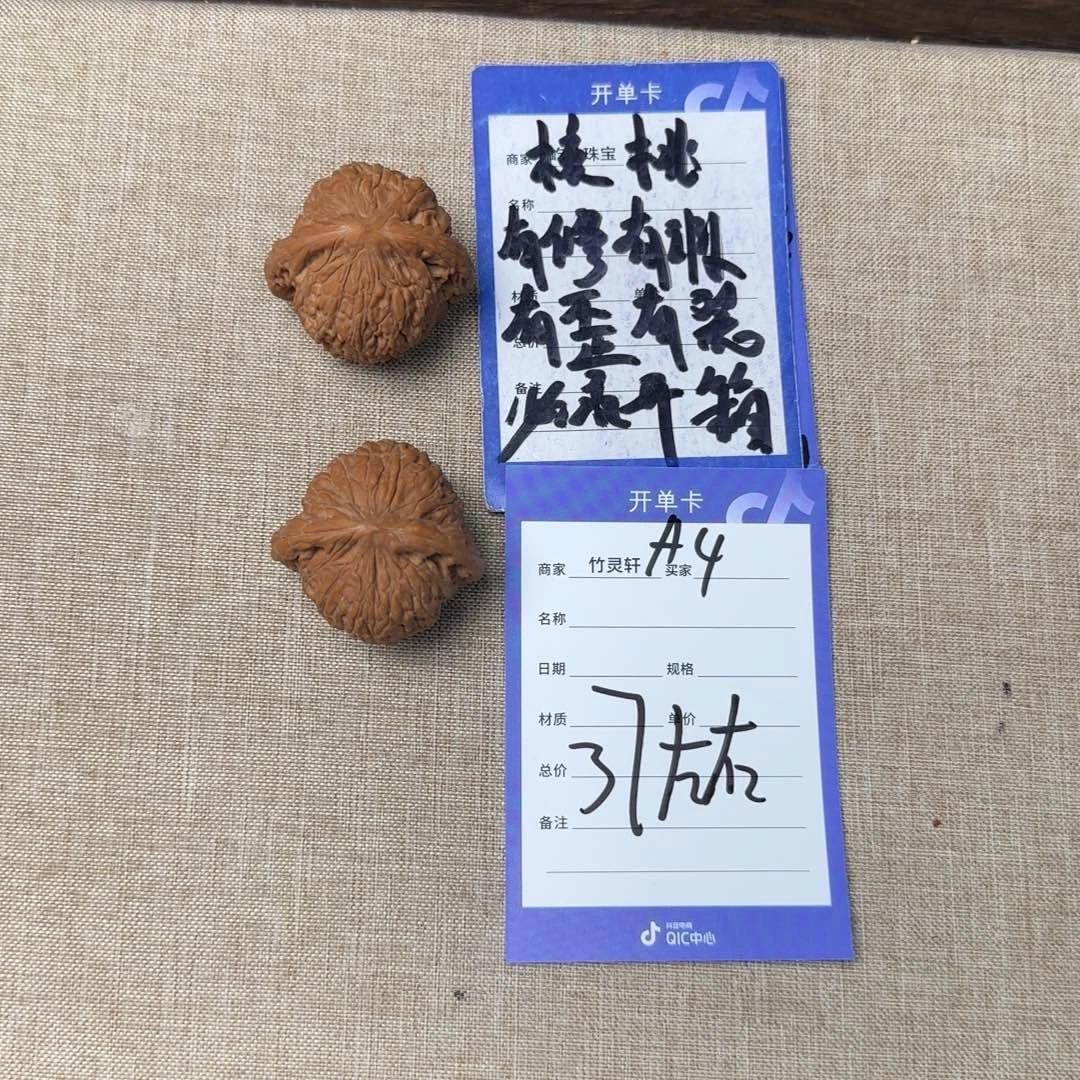 开单卡
核桃
商家 珠宝
名称
有修有浪
材质 单
有歪有裂
总价
必录开箱
备注
开单卡
A4
商家 竹灵轩 买家
名称
日期 规格
材质 单价
37左右
总价
备注
抖音电商
QIC中心